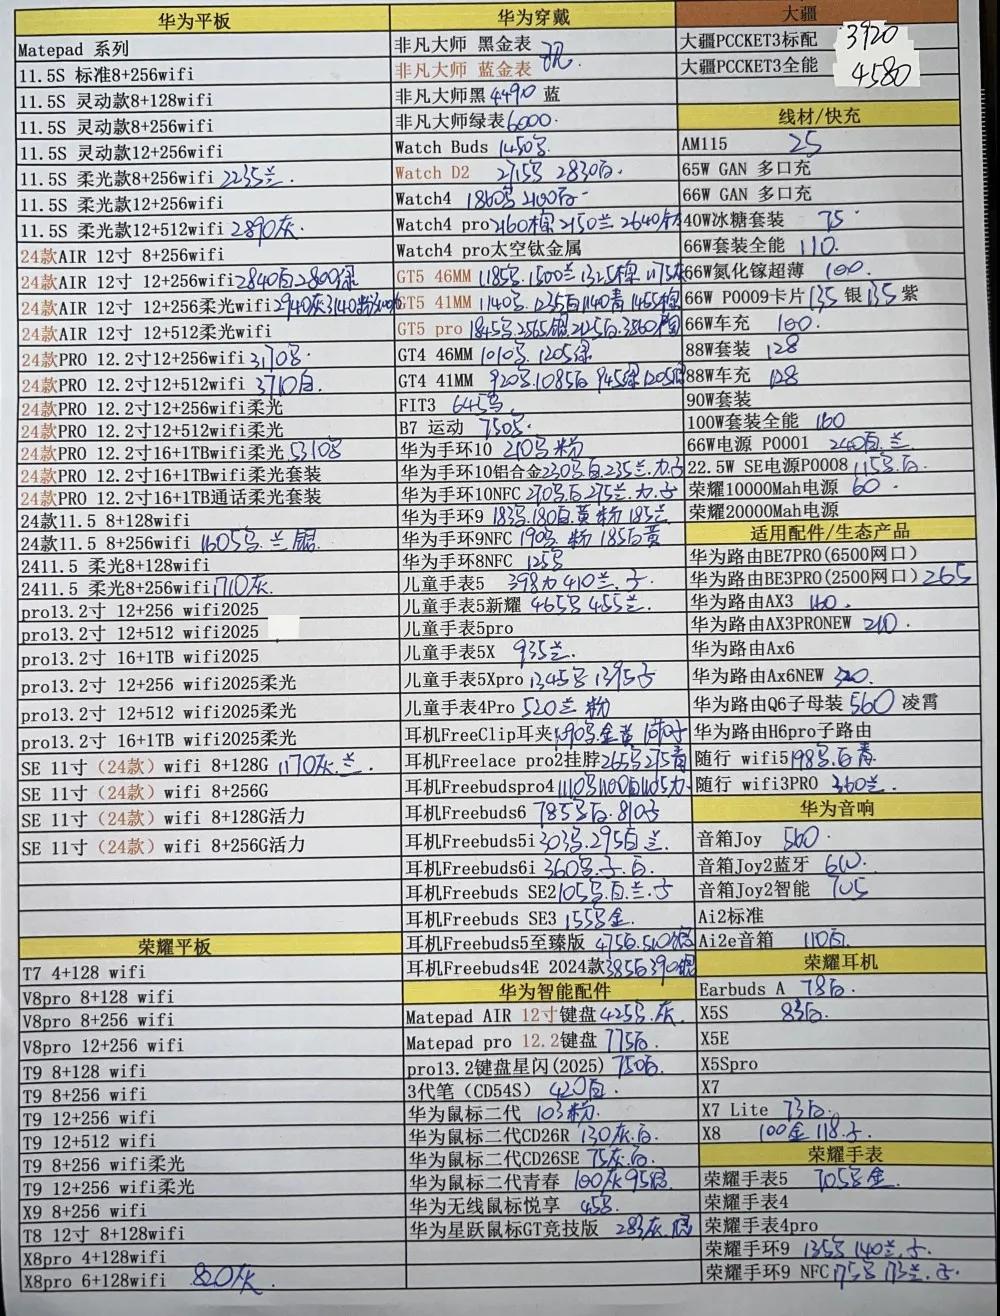 华为平板
Matepad 系列
11.5S 标准8+256wifi
11.5S 灵动款8+128wifi
11.5S 灵动款8+256wifi
11.5S 灵动款12+256wifi
11.5S 柔光款8+256wifi 2235兰.
11.5S 柔光款12+256wifi
11.5S 柔光款12+512wifi 2890灰.
24款AIR 12寸 8+256wifi
24款AIR 12寸 12+256wifi 2840白2800绿
24款AIR 12寸 12+256柔光wifi 2940灰3140粉
24款AIR 12寸 12+512柔光wifi
24款PRO 12.2寸12+256wifi 3170号.
24款PRO 12.2寸12+512wifi 3710白.
24款PRO 12.2寸12+256wifi柔光
24款PRO 12.2寸12+512wifi柔光
24款PRO 12.2寸16+1TBwifi柔光 5310号
24款PRO 12.2寸16+1TBwifi柔光套装
24款PRO 12.2寸16+1TB通话柔光套装
24款11.5 8+128wifi
24款11.5 8+256wifi 1605号.兰 银.
2411.5 柔光8+128wifi
2411.5 柔光8+256wifi 1710灰.
pro13.2寸 12+256 wifi2025
pro13.2寸 12+512 wifi2025
pro13.2寸 16+1TB wifi2025
pro13.2寸 12+256 wifi2025柔光
pro13.2寸 12+512 wifi2025柔光
pro13.2寸 16+1TB wifi2025柔光
SE 11寸（24款）wifi 8+128G 1170灰.兰.
SE 11寸（24款）wifi 8+256G
SE 11寸（24款）wifi 8+128G活力
SE 11寸（24款）wifi 8+256G活力
荣耀平板
T7 4+128 wifi
V8pro 8+128 wifi
V8pro 8+256 wifi
V8pro 12+256 wifi
T9 8+128 wifi
T9 8+256 wifi
T9 12+256 wifi
T9 12+512 wifi
T9 8+256 wifi柔光
T9 12+256 wifi柔光
X9 8+256 wifi
T8 12寸 8+128wifi
X8pro 4+128wifi
X8pro 6+128wifi 820灰.
华为穿戴
非凡大师 黑金表
非凡大师 蓝金表
非凡大师黑 4490 蓝
非凡大师绿表 6000.
Watch Buds 1450号.
Watch D2 2115号 2830白.
Watch4 1860号 2100白-
Watch4 pro 2160棕 2150兰 2640钛
Watch4 pro太空钛金属
GT5 46MM 1185号.1500兰1325棕 1175灰
GT5 41MM 1140号.1235白1140青1455棕
GT5 pro 1845号.2565银2125白.3860陶
GT4 46MM 1010号.1205绿
GT4 41MM 920号.1085白 945绿1205银
FIT3 645号
B7 运动 750号.
华为手环10 210号 粉
华为手环10铝合金 230号白.235兰.力.子
华为手环10NFC 270号白 275兰.力.子
华为手环9 183号.180白.黄 粉 185兰
华为手环9NFC 190号. 粉 185白黄
华为手环8NFC 125号
儿童手表5 398力 410兰.子.
儿童手表5新耀 465号 455兰.
儿童手表5pro
儿童手表5X 935兰.
儿童手表5Xpro 1345号 1395子
儿童手表4Pro 520兰 粉
耳机FreeClip耳夹
耳机Freelace pro2挂脖 265号275青
耳机Freebudspro4 1110号1100白1105力.
耳机Freebuds6 785号白.810子
耳机Freebuds5i 303号.295白兰.
耳机Freebuds6i 360号.子.白.
耳机Freebuds SE2 105号.白.兰.子
耳机Freebuds SE3 155号金.
耳机Freebuds5至臻版
耳机Freebuds4E 2024款
华为智能配件
Matepad AIR 12寸键盘 425号.灰.
Matepad pro 12.2键盘 775白.
pro13.2键盘星闪(2025) 750白.
3代笔（CD54S） 420白.
华为鼠标二代 103粉.
华为鼠标二代CD26R 130灰.白.
华为鼠标二代CD26SE 75灰.白
华为鼠标二代青春 100灰95绿.
华为无线鼠标悦享 45号.
华为星跃鼠标GT竞技版 283灰.银
大疆
大疆PCCKET3标配 3920
大疆PCCKET3全能 4580
线材/快充
AM115 25
65W GAN 多口充
66W GAN 多口充
40W冰糖套装 75.
66W套装全能 110.
66W氮化镓超薄 100.
66W P0009卡片 135 银 135 紫
66W车充 100.
88W套装 128
88W车充 128
90W套装
100W套装全能 160
66W电源 P0001 240白.兰
22.5W SE电源P0008 115号.白.
荣耀10000Mah电源 60.
荣耀20000Mah电源
适用配件/生态产品
华为路由BE7PRO(6500网口)
华为路由BE3PRO(2500网口) 265
华为路由AX3 160.
华为路由AX3PRONEW 210.
华为路由Ax6
华为路由Ax6NEW 320.
华为路由Q6子母装 560 凌霄
华为路由H6pro子路由
随行 wifi5 198号.白青
随行 wifi3PRO 360兰.
华为音响
音箱Joy 560.
音箱Joy2蓝牙 610.
音箱Joy2智能 705
Ai2标准
Ai2e音箱 110白.
荣耀耳机
Earbuds A 78白.
X5S 83白.
X5E
X5Spro
X7
X7 Lite 73白.
X8 100金 118.子.
荣耀手表
荣耀手表5 705号金.
荣耀手表4
荣耀手表4pro
荣耀手环9 135号 140兰.子.
荣耀手环9 NFC 175号 173兰.子.